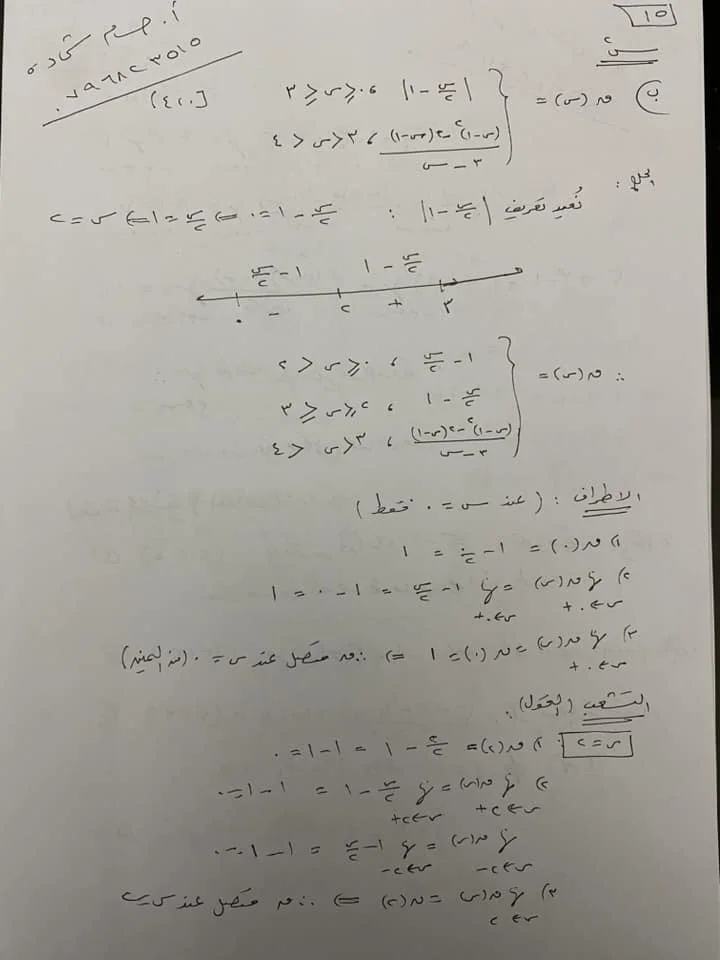 ١٥
أ. حسام شحادة
٠٧٩٦٨٢٣٥١٥
س٢
ب) ق(س) = { |س/٢ - ١| ، ٠ ≤ س ≤ ٣
(س-١)^٢ - ٢(س-١) / س - ٣ ، ٣ < س < ٤
[٤،٠)
الحل:
نُعيد تعريف |س/٢ - ١| : س/٢ - ١ = ٠ ⇐ س/٢ = ١ ⇐ س = ٢
١ - س/٢ س/٢ - ١
٠ - ٢ + ٣
∴ ق(س) = { ١ - س/٢ ، ٠ ≤ س < ٢
س/٢ - ١ ، ٢ ≤ س ≤ ٣
(س-١)^٢ - ٢(س-١) / س - ٣ ، ٣ < س < ٤
الاطراف : (عند س = ٠ فقط)
١) ق(٠) = ١ - ٠/٢ = ١
٢) نها ق(س) = نها ١ - س/٢ = ١ - ٠ = ١
س←٠+ س←٠+
٣) نها ق(س) = ق(٠) = ١ ⇐ ∴ ق متصل عند س = ٠ (من اليمين)
س←٠+
التشعب (التحول):
س = ٢ : ١) ق(٢) = ٢/٢ - ١ = ١ - ١ = ٠
٢) نها ق(س) = نها س/٢ - ١ = ١ - ١ = ٠
س←٢+ س←٢+
نها ق(س) = نها ١ - س/٢ = ١ - ١ = ٠
س←٢- س←٢-
٣) نها ق(س) = ق(٢) ⇐ ∴ ق متصل عند س = ٢
س←٢